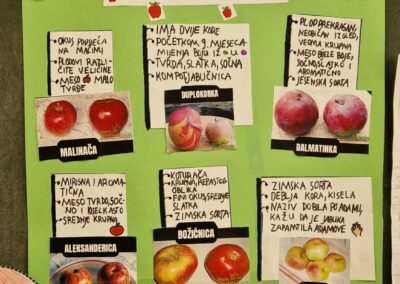 OKUS PODSJEĆA
NA MALINU
PLODOVI RAZLI-
ČITE VELIČINE
MESO MALO
TVRĐE
MALINAČA
IMA DVIJE KORE
POČETKOM 9. MJESECA
MIJENJA BOJU IZ U
TVRDA, SLATKA, SOČNA
KOMPOT, JABUČNICA
DUPLOKORKA
PLOD PREKRASAN,
NEOBIČAN IZGLED,
VEOMA KRUPNA
MESO BIJELE BOJE,
SOČNO, SLATKO I
AROMATIČNO
JESENSKA SORTA
DALMATINKA
MIRISNA I AROMA
TIČNA
MESO TVRDO, SOČ-
NO I KISELKASTO
SREDNJE KRUPNA
ALEKSANDERICA
KOTURAČA
KRUPNA, REPASTOG
OBLIKA
FINI OKUS, SREDNJE
SLATKA
ZIMSKA SORTA
BOŽIĆNICA
ZIMSKA SORTA
DEBLJA KORA, KISELA
NAZIV DOBILA PO ADAMU,
KAŽU DA JE JABUKA
ZAPANTILA ADAMOVE